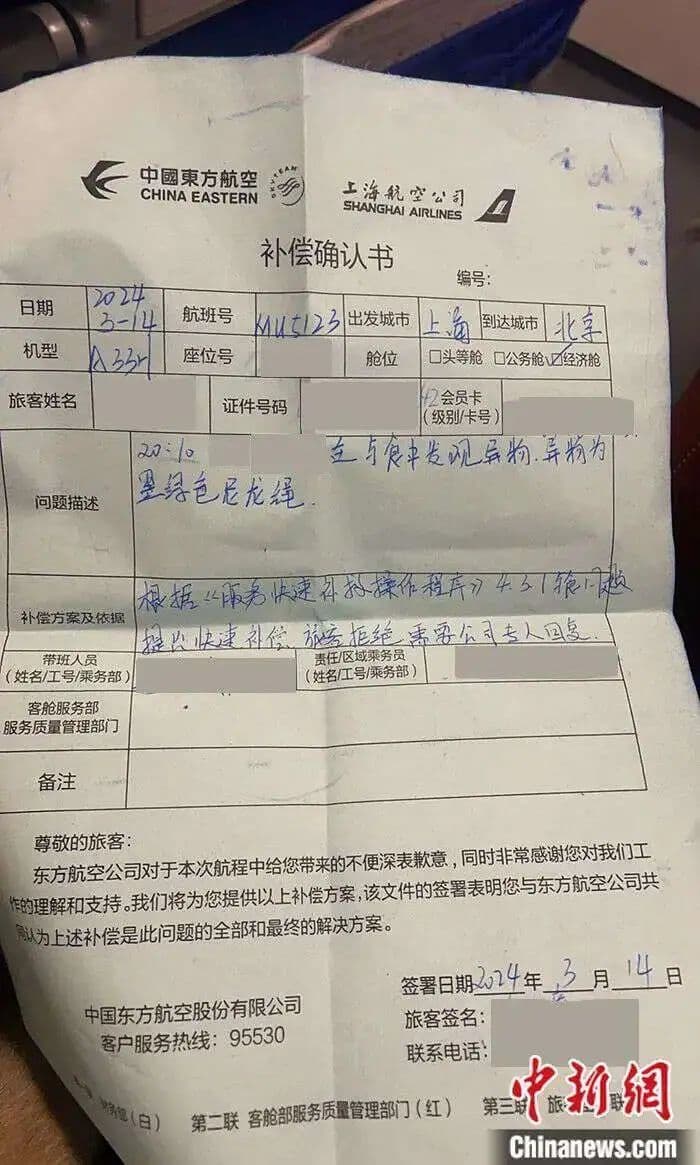 中國東方航空
CHINA EASTERN
SKYTEAM
上海航空公司
SHANGHAI AIRLINES
补偿确认书
编号:
日期 2024 3-14 航班号 MU5123 出发城市 上海 到达城市 北京
机型 A33 座位号 舱位 □头等舱 □公务舱 ☑经济舱
旅客姓名 证件号码 会员卡
(级别/卡号)
问题描述 20:10 在与食中发现异物.异物为
墨绿色尼龙绳.
补偿方案及依据 根据《服务快速补救操作程序》4.3.1
提出快速补偿,旅客拒绝,需要公司专人回复.
带班人员
(姓名/工号/乘务部)
责任/区域乘务员
(姓名/工号/乘务部)
客舱服务部
服务质量管理部门
备注
尊敬的旅客:
东方航空公司对于本次航程中给您带来的不便深表歉意,同时非常感谢您对我们工
作的理解和支持。我们将为您提供以上补偿方案,该文件的签署表明您与东方航空公司共
同认为上述补偿是此问题的全部和最终的解决方案。
签署日期 2024 年 3 月 14 日
中国东方航空股份有限公司
旅客签名:
客户服务热线: 95530
联系电话:
财务部(白) 第二联 客舱部服务质量管理部门(红) 第三联 旅
中新网
Chinanews.com